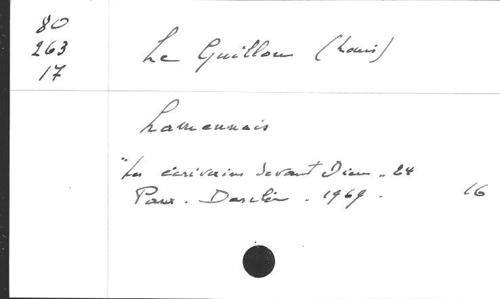 80
263
17
Le Guillou (Louis)
Lamennais
"Les écrivains devant Dieu" - 24
Paris. Desclée. 1969.
16